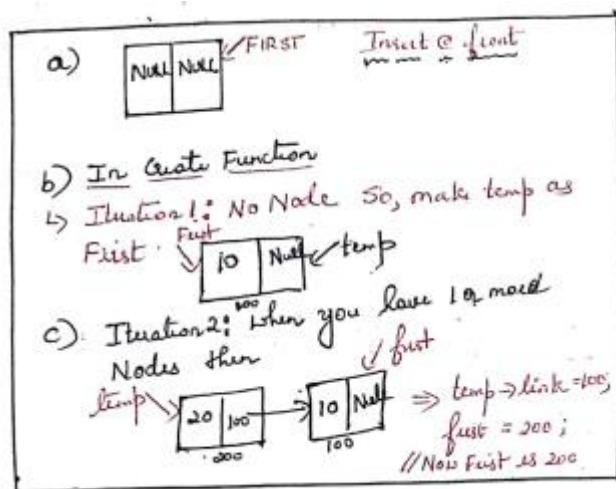 a) NULL NULL FIRST Insert @ front
b) In Create Function
↳ Iteration1: No Node So, make temp as
First.
First
10 Null temp
100
c) Iteration2: When you have 1 or more
Nodes then
first
temp 20 100 10 Null ⇒ temp→link=100;
200 100 first = 200;
//Now First is 200